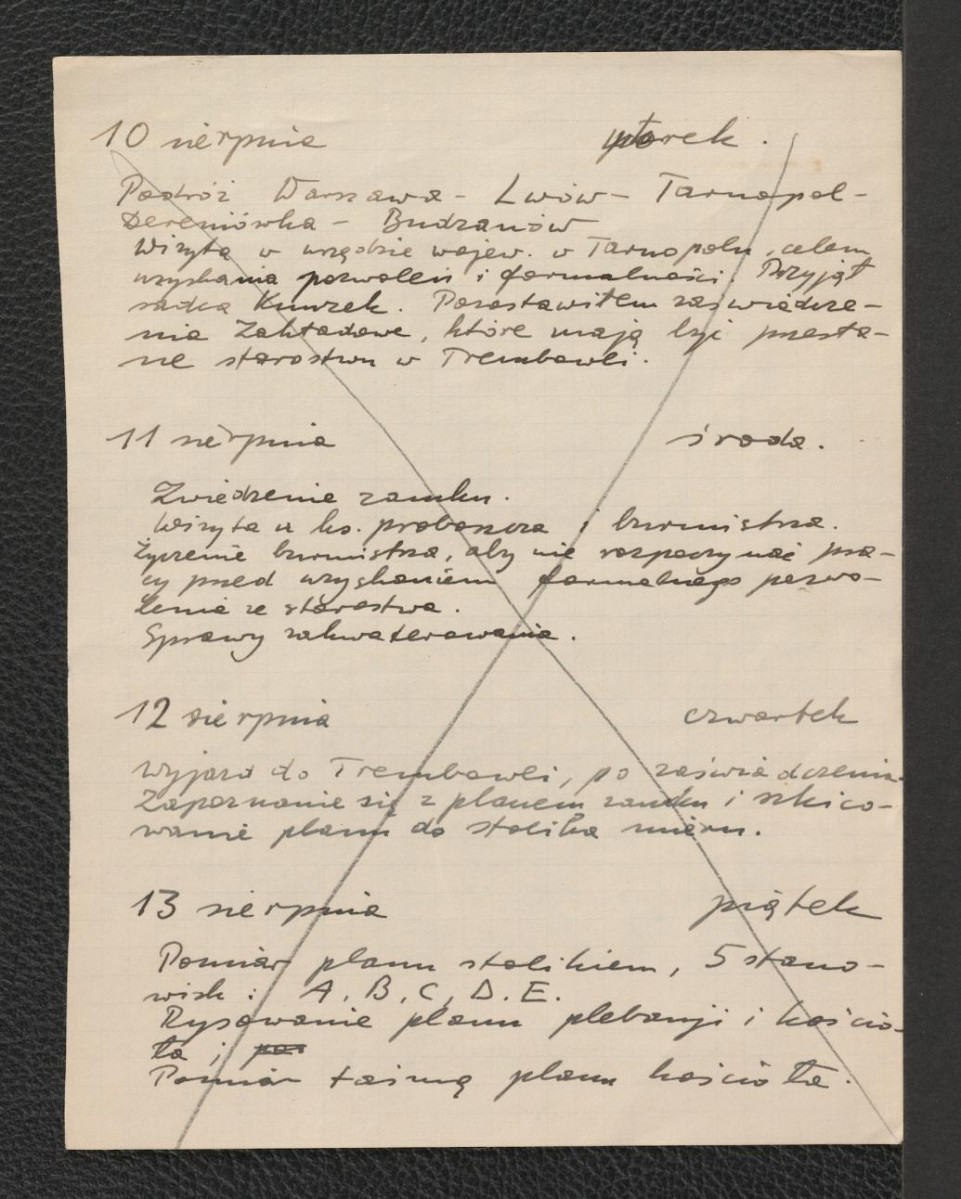 10 sierpnia wtorek.
Podróż Warszawa - Lwów - Tarnopol -
Dereniówka - Budzanów
Wizyta w urzędzie wojew. w Tarnopolu, celem
uzyskania pozwoleń i formalności. Przyjął
radca Kunzek. Pozostawiłem zaświadcze-
nia Zakładowe, które mają być przesła-
ne starostwu w Trembowli.
11 sierpnia środa.
Zwiedzenie zamku.
Wizyta u ks. proboszcza i burmistrza.
Życzenie burmistrza, aby nie rozpoczynać pra-
cy przed uzyskaniem formalnego pozwo-
lenia ze starostwa.
Sprawy zakwaterowania.
12 sierpnia czwartek
Wyjazd do Trembowli, po zaświadczenia
Zapoznanie się z planem zamku i szkico-
wanie planu do stolika miern.
13 sierpnia piątek
Pomiar planu stolikiem, 5 stano-
wisk: A, B, C, D, E.
Rysowanie planu plebanji i kościo-
ła i
Pomiar taśmą planu kościoła.